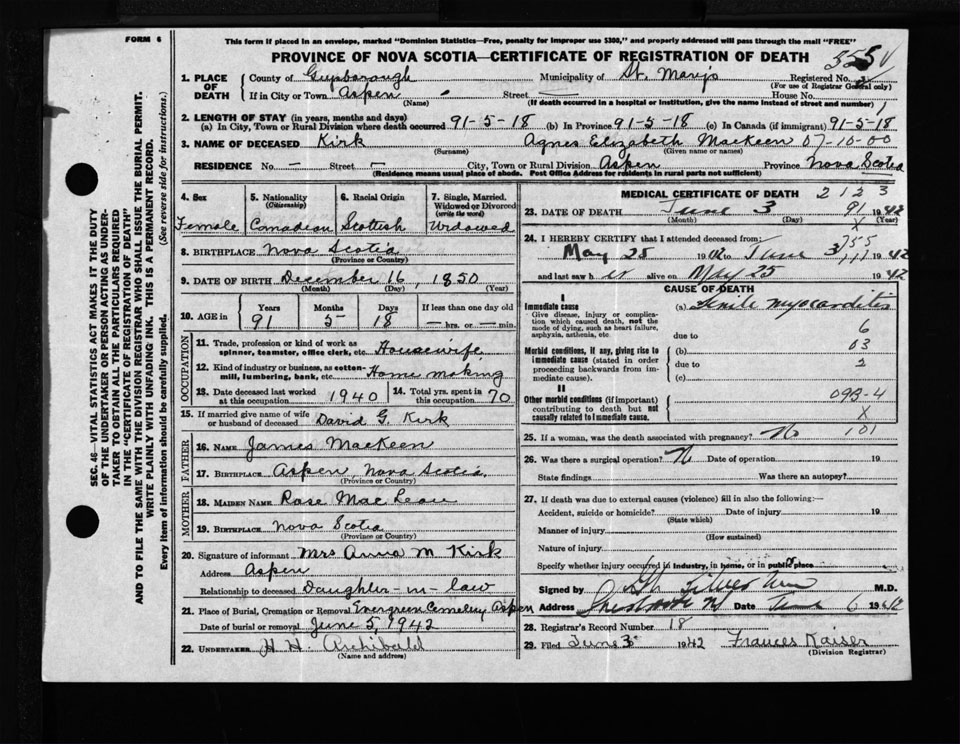 FORM 6
This form if placed in an envelope, marked "Dominion Statistics—Free, penalty for improper use $300," and properly addressed will pass through the mail "FREE"
PROVINCE OF NOVA SCOTIA—CERTIFICATE OF REGISTRATION OF DEATH
1. PLACE OF DEATH
County of Guysborough Municipality of St. Marys Registered No.
(For use of Registrar General only)
If in City or Town Aspen Street House No.
(Name) (If death occurred in a hospital or institution, give the name instead of street and number)
2. LENGTH OF STAY (in years, months and days)
(a) In City, Town or Rural Division where death occurred 91-5-18 (b) In Province 91-5-18 (c) In Canada (if immigrant) 91-5-18
3. NAME OF DECEASED Kirk Agnes Elizabeth MacKeen 07-10-00
(Surname) (Given name or names)
RESIDENCE No. — Street — City, Town or Rural Division Aspen Province Nova Scotia
(Residence means usual place of abode. Post Office Address for residents in rural parts not sufficient)
4. Sex
Female
5. Nationality
(Citizenship)
Canadian
6. Racial Origin
Scottish
7. Single, Married, Widowed or Divorced
(write the word)
Widowed
8. BIRTHPLACE Nova Scotia
(Province or Country)
9. DATE OF BIRTH December 16, 1850
(Month) (Day) (Year)
10. AGE in
Years Months Days If less than one day old
91 5 18 — hrs. or — min.
OCCUPATION
11. Trade, profession or kind of work as spinner, teamster, office clerk, etc. Housewife
12. Kind of industry or business, as cotton-mill, lumbering, bank, etc. Home making
13. Date deceased last worked at this occupation 1940
14. Total yrs. spent in this occupation 70
15. If married give name of wife or husband of deceased David G. Kirk
FATHER
16. NAME James MacKeen
17. BIRTHPLACE Aspen, Nova Scotia
(Province or Country)
MOTHER
18. MAIDEN NAME Rose MacLean
19. BIRTHPLACE Nova Scotia
(Province or Country)
20. Signature of informant Mrs Anna M Kirk
Address Aspen
Relationship to deceased Daughter-in-law
21. Place of Burial, Cremation or Removal Evergreen Cemetery Aspen
Date of burial or removal June 5, 1942
22. UNDERTAKER H H. Archibald
(Name and address)
MEDICAL CERTIFICATE OF DEATH 2123
23. DATE OF DEATH June 3 91 1942
(Month) (Day) (Year)
24. I HEREBY CERTIFY that I attended deceased from
May 25 1942 to June 3 1942
and last saw her alive on May 25 1942
CAUSE OF DEATH
I
Immediate cause
Give disease, injury or complication which caused death, not the mode of dying, such as heart failure, asphyxia, asthenia, etc.
(a) Senile myocarditis
due to 6
Morbid conditions, if any, giving rise to immediate cause (stated in order proceeding backwards from immediate cause).
(b) 03
due to 2
(c)
II
Other morbid conditions (if important) contributing to death but not causally related to immediate cause.
093-4
X
25. If a woman, was the death associated with pregnancy? No 101
26. Was there a surgical operation? N Date of operation 19
State findings Was there an autopsy?
27. If death was due to external causes (violence) fill in also the following:—
Accident, suicide or homicide? Date of injury 19
(State which)
Manner of injury
(How sustained)
Nature of injury
Specify whether injury occurred in industry, in home, or in public place
Signed by M.D.
Address Date June 6 1942
28. Registrar's Record Number 18
29. Filed June 3 1942 Frances Kaiser
(Division Registrar)
SEC. 46—VITAL STATISTICS ACT MAKES IT THE DUTY
OF THE UNDERTAKER OR PERSON ACTING AS UNDER-
TAKER TO OBTAIN ALL THE PARTICULARS REQUIRED
IN THE "CERTIFICATE OF REGISTRATION OF DEATH"
AND TO FILE THE SAME WITH THE DIVISION REGISTRAR WHO SHALL ISSUE THE BURIAL PERMIT.
WRITE PLAINLY WITH UNFADING INK. THIS IS A PERMANENT RECORD.
Every item of information should be carefully supplied. (See reverse side for instructions.)